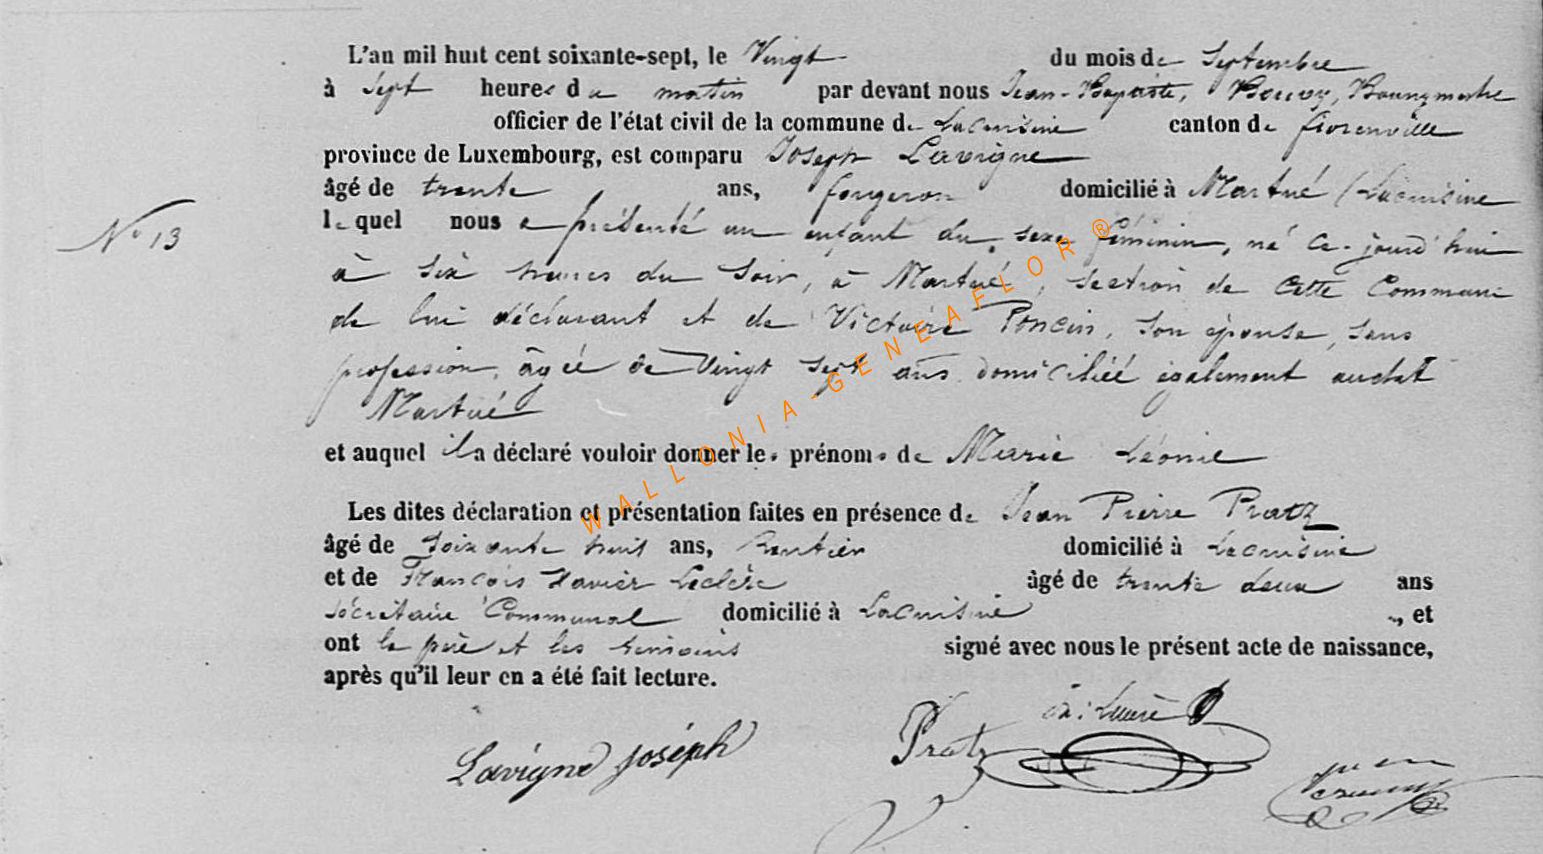 L'an mil huit cent soixante-sept, le Vingt du mois de Septembre
à sept heures du matin par devant nous Jean-Baptiste, Bouvy, Bourgmestre
officier de l'état civil de la commune de Lacuisine canton de florenville
province de Luxembourg, est comparu Joseph Lavigne
âgé de trente ans, forgeron domicilié à Martué (Lacuisine
N° 13
lequel nous a présenté un enfant du sexe féminin, né ce jourd'hui
à six heures du soir, à Martué, section de cette Commune
de lui déclarant et de Victoire Poncin, son épouse, sans
profession, âgée de Vingt sept ans domiciliée également audit
Martué
et auquel il a déclaré vouloir donner les prénoms de Marie Léonie
Les dites déclaration et présentation faites en présence de Jean Pierre Pratz
âgé de soixante huit ans, Rentier domicilié à Lacuisine
et de François Xavier Leclère âgé de trente deux ans
sécrétaire Communal domicilié à Lacuisine , et
ont le père et les témoins signé avec nous le présent acte de naissance,
après qu'il leur en a été fait lecture.
Lavigne Joseph Pratz
WALLONIA-GENEAFLOR ®